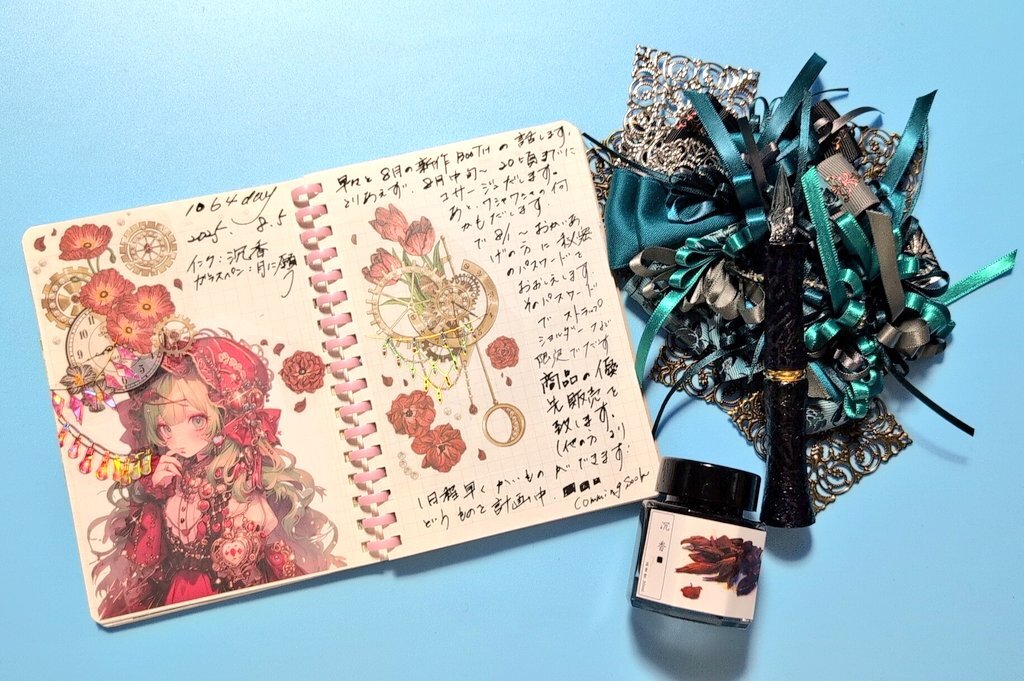 1064day
2025. 8.5
インク:沉香
ガラスペン:月に願う
早々と8月の新作BOOTHの話します。
とりあえず 8月中旬~20日頃までに
コサージュだします。
あと、ワシャワシャの何
かもだします。
で8/1~おかいあ
げの方に秘密
のパスワードで
おおしえします。
そのパスワード
で ストラップ
ショルダー
限定でだす
商品の優
先販売を
致します
(他の方より
1日程早くかいもの ができます。
どうものを計画中。
Comming Soon
沉香